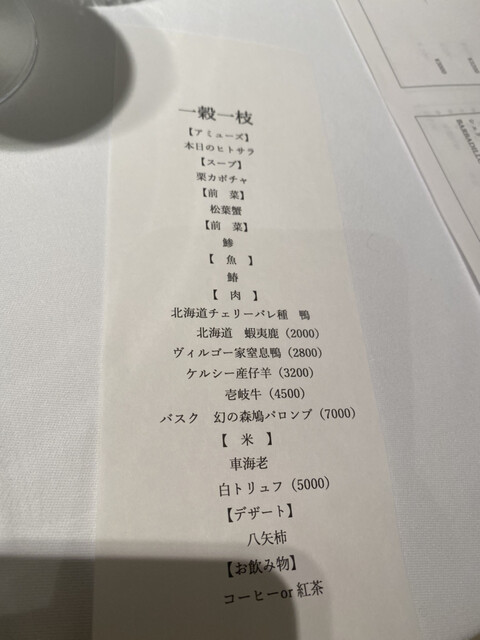 一穀一枝
【アミューズ】
本日のヒトサラ
【スープ】
栗カボチャ
【前　菜】
松葉蟹
【前　菜】
鯵
【　魚　】
鰆
【　肉　】
北海道チェリーバレ種　鴨
北海道　蝦夷鹿（2000）
ヴィルゴー家窒息鴨（2800）
ケルシー産仔羊（3200）
壱岐牛（4500）
バスク　幻の森鳩パロンブ（7000）
【　米　】
車海老
白トリュフ（5000）
【デザート】
八矢柿
【お飲み物】
コーヒーor 紅茶